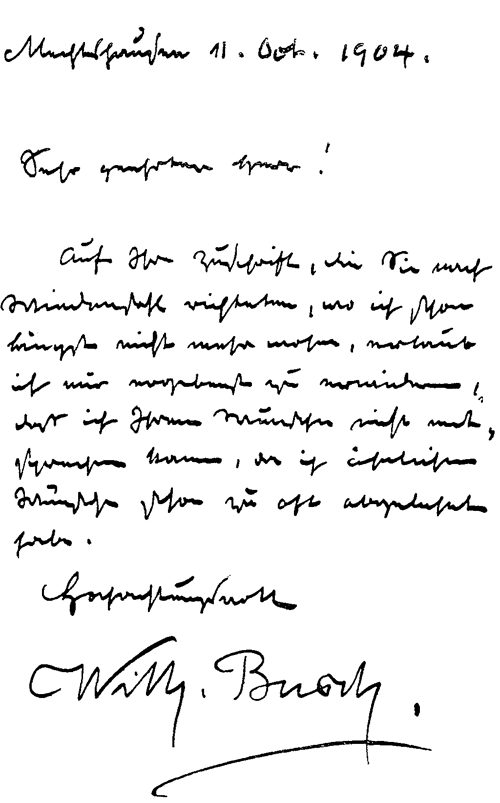 Mechtshausen 11. Oct. 1904.
Sehr geehrter Herr!
Auf Ihre Zuschrift, die Sie nach
Wiedensahl richteten, wo ich schon
längst nicht mehr wohne, erlaub
ich mir ergebenst zu erwiedern,
daß ich Ihrem Wunsche nicht ent-
sprechen kann, da ich ähnliche
Wünsche schon zu oft abgelehnt
habe.
Hochachtungsvoll
Wilh. Busch.